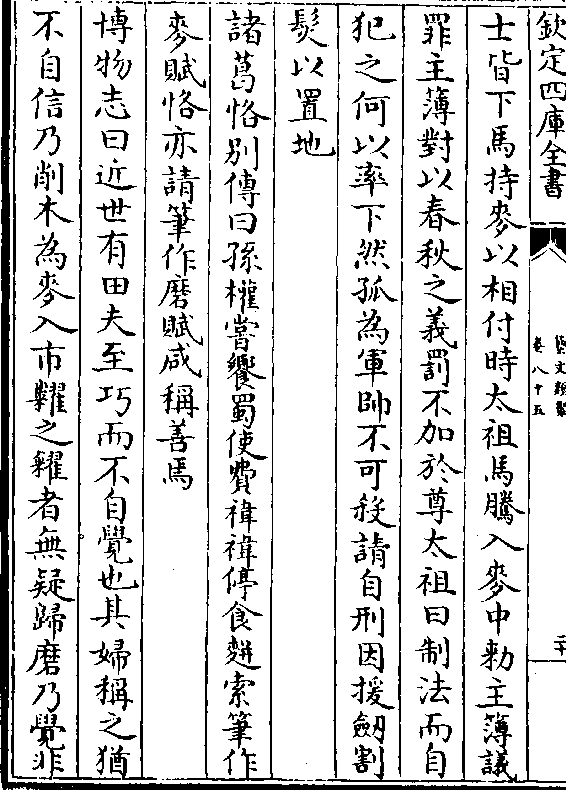 欽定四庫全書
藝文類聚
卷八十五
二十
士皆下馬持麥以相付時太祖馬騰入麥中勅主簿議
罪主簿對以春秋之義罰不加於尊太祖曰制法而自
犯之何以率下然孤為軍帥不可殺請自刑因援劔割
髮以置地
諸葛恪别傳曰孫權嘗饗蜀使費禕禕停食麪索筆作
麥賦恪亦請筆作磨賦咸稱善焉
博物志曰近世有田夫至巧而不自覺也其婦稱之猶
不自信乃削木為麥入市糶之糴者無疑歸磨乃覺非